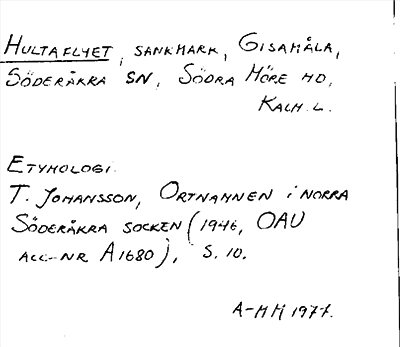 HULTAFLYET, SANKMARK, GISAMÅLA,
SÖDERÅKRA SN, SÖDRA MÖRE HD,
KALM. L.
ETYMOLOGI.
T. JOHANSSON, ORTNAMNEN I NORRA
SÖDERÅKRA SOCKEN (1946, OAU
ACC.-NR A1680), S. 10.
A-M M 1977.